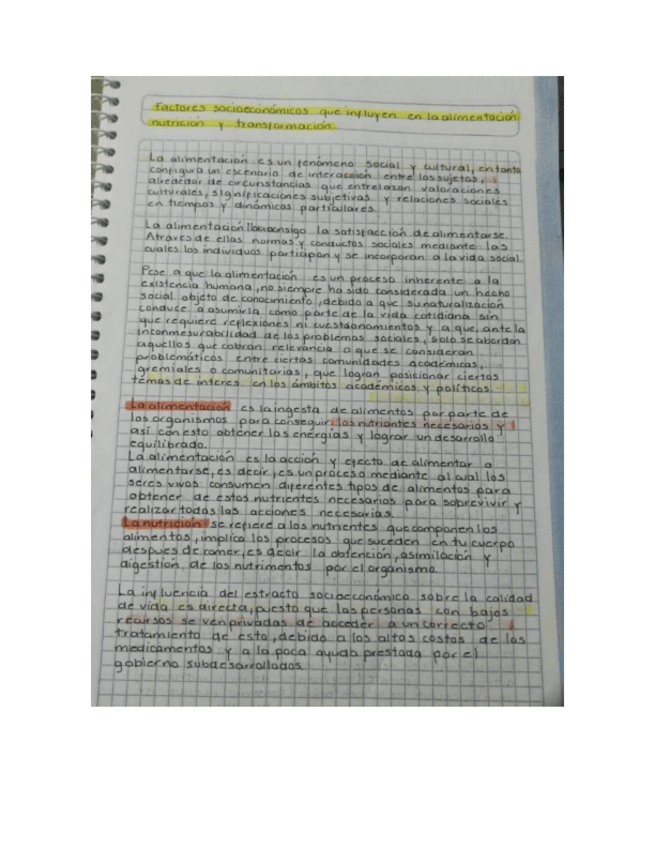 factores socioeconómicos que influyen en la alimentación
nutrición y transformación.
La alimentación es un fenómeno social y cultural, en tanto
configura un escenario de interacción entre los sujetos,
alrededor de circunstancias que entrelazan valoraciones
culturales, significaciones subjetivas y relaciones sociales
en tiempos y dinámicas particulares.
La alimentación lleva consigo la satisfacción de alimentarse.
Atraves de ellas normas y conductas sociales mediante las
cuales los individuos participan y se incorporan a la vida social.
Pese a que la alimentación es un proceso inherente a la
existencia humana, no siempre ha sido considerada un hecho
social objeto de conocimiento, debido a que su naturalización
conduce a asumirla como parte de la vida cotidiana sin
que requiere reflexiones ni cuestionamientos y a que, ante la
inconmesurabilidad de los problemas sociales, solo se abordan
aquellos que cobran relevancia o que se consideran
problemáticos entre ciertas comunidades académicas,
gremiales o comunitarias, que logran posicionar ciertos
temas de interes en los ámbitos académicos y políticos.
La alimentación es la ingesta de alimentos por parte de
los organismos para conseguir los nutrientes necesarios y
así con esto obtener las energías y lograr un desarrollo
equilibrado.
La alimentación es la acción y efecto de alimentar o
alimentarse, es decir, es un proceso mediante al cual los
seres vivos consumen diferentes tipos de alimentos para
obtener de estos nutrientes necesarios para sobrevivir y
realizar todas las acciones necesarias.
La nutrición se refiere a los nutrientes que componen los
alimentos, implica los procesos que suceden en tu cuerpo
despues de comer, es decir la obtención, asimilación y
digestión de los nutrimentos por el organismo.
La influencia del estracto socioeconómico sobre la calidad
de vida es directa, puesto que las personas con bajos
recursos se ven privadas de acceder a un correcto
tratamiento de esto, debido a los altos costos de los
medicamentos y a la poca ayuda prestada por el
gobierno subdesarrollados.